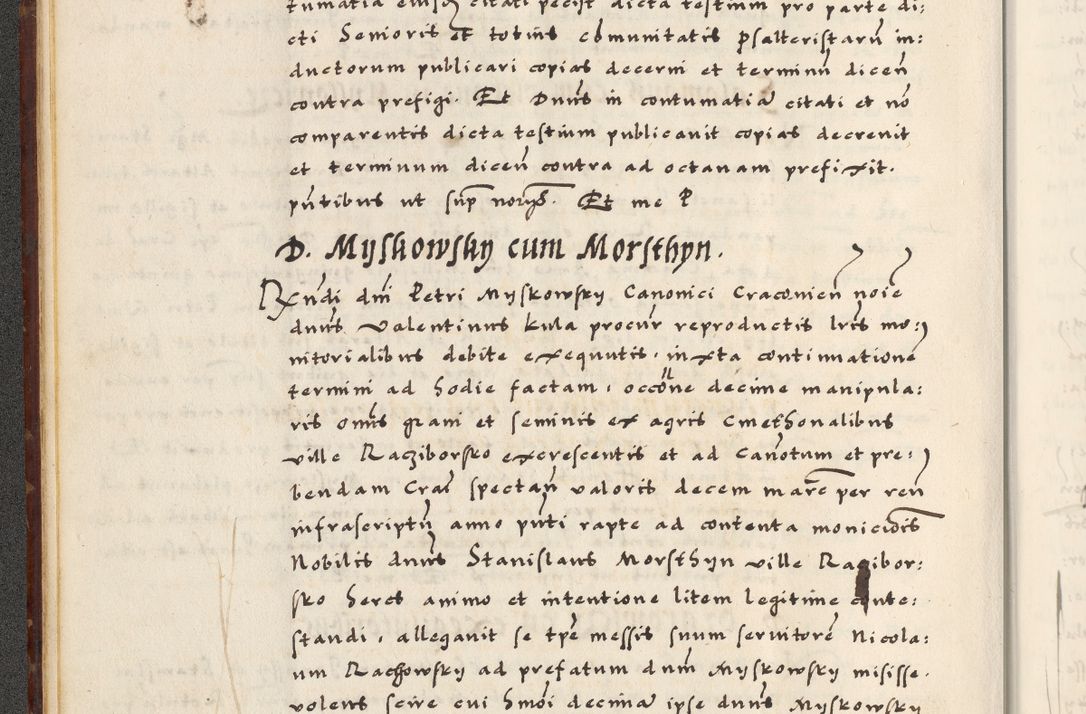 tumatia eiusq citati pecijt dicta testium pro parte di:
cti Senioris et totius cōmunitatis Psalteristarū in:
ductorum publicari copias decerni et terminū diceñ
contra prefigi. Et Dnus in contumatiā citati et nō
comparentis dicta testium publicauit copias decreuit
et terminum diceñ contra ad octauam prefixit.
pñtibus ut sup̄ Et me P
D. Myskowsky cum Morsthyn.
Rñdi dni Petri Myskowsky Canonici Cracouieñ noīe
dnus Valentinus kula procur reproductis lris mo:
nitorialibus debite exequutis, iuxta continuationē
termini ad hodie factam, occōne decime manipula:
ris omīs grani et seminis ex agris Cmethonalibus
ville Racziborsko excrescentis et ad Cañotum et pre:
bendam Craē spectañ valoris decem marc per reñ
infrascriptū anno pñti rapte ad contenta moniciōis
Nobilis dnus Stanislaus Morsthyn ville Racibor:
sko heres animo et intentione litem legitime conte:
standi, allegauit se tpē messis suum seruitorē Nicola:
um Raczowsky ad prefatum dnm Myskowsky misisse.
volens scire cui hmōi decimā ipse dnus Myskowsky